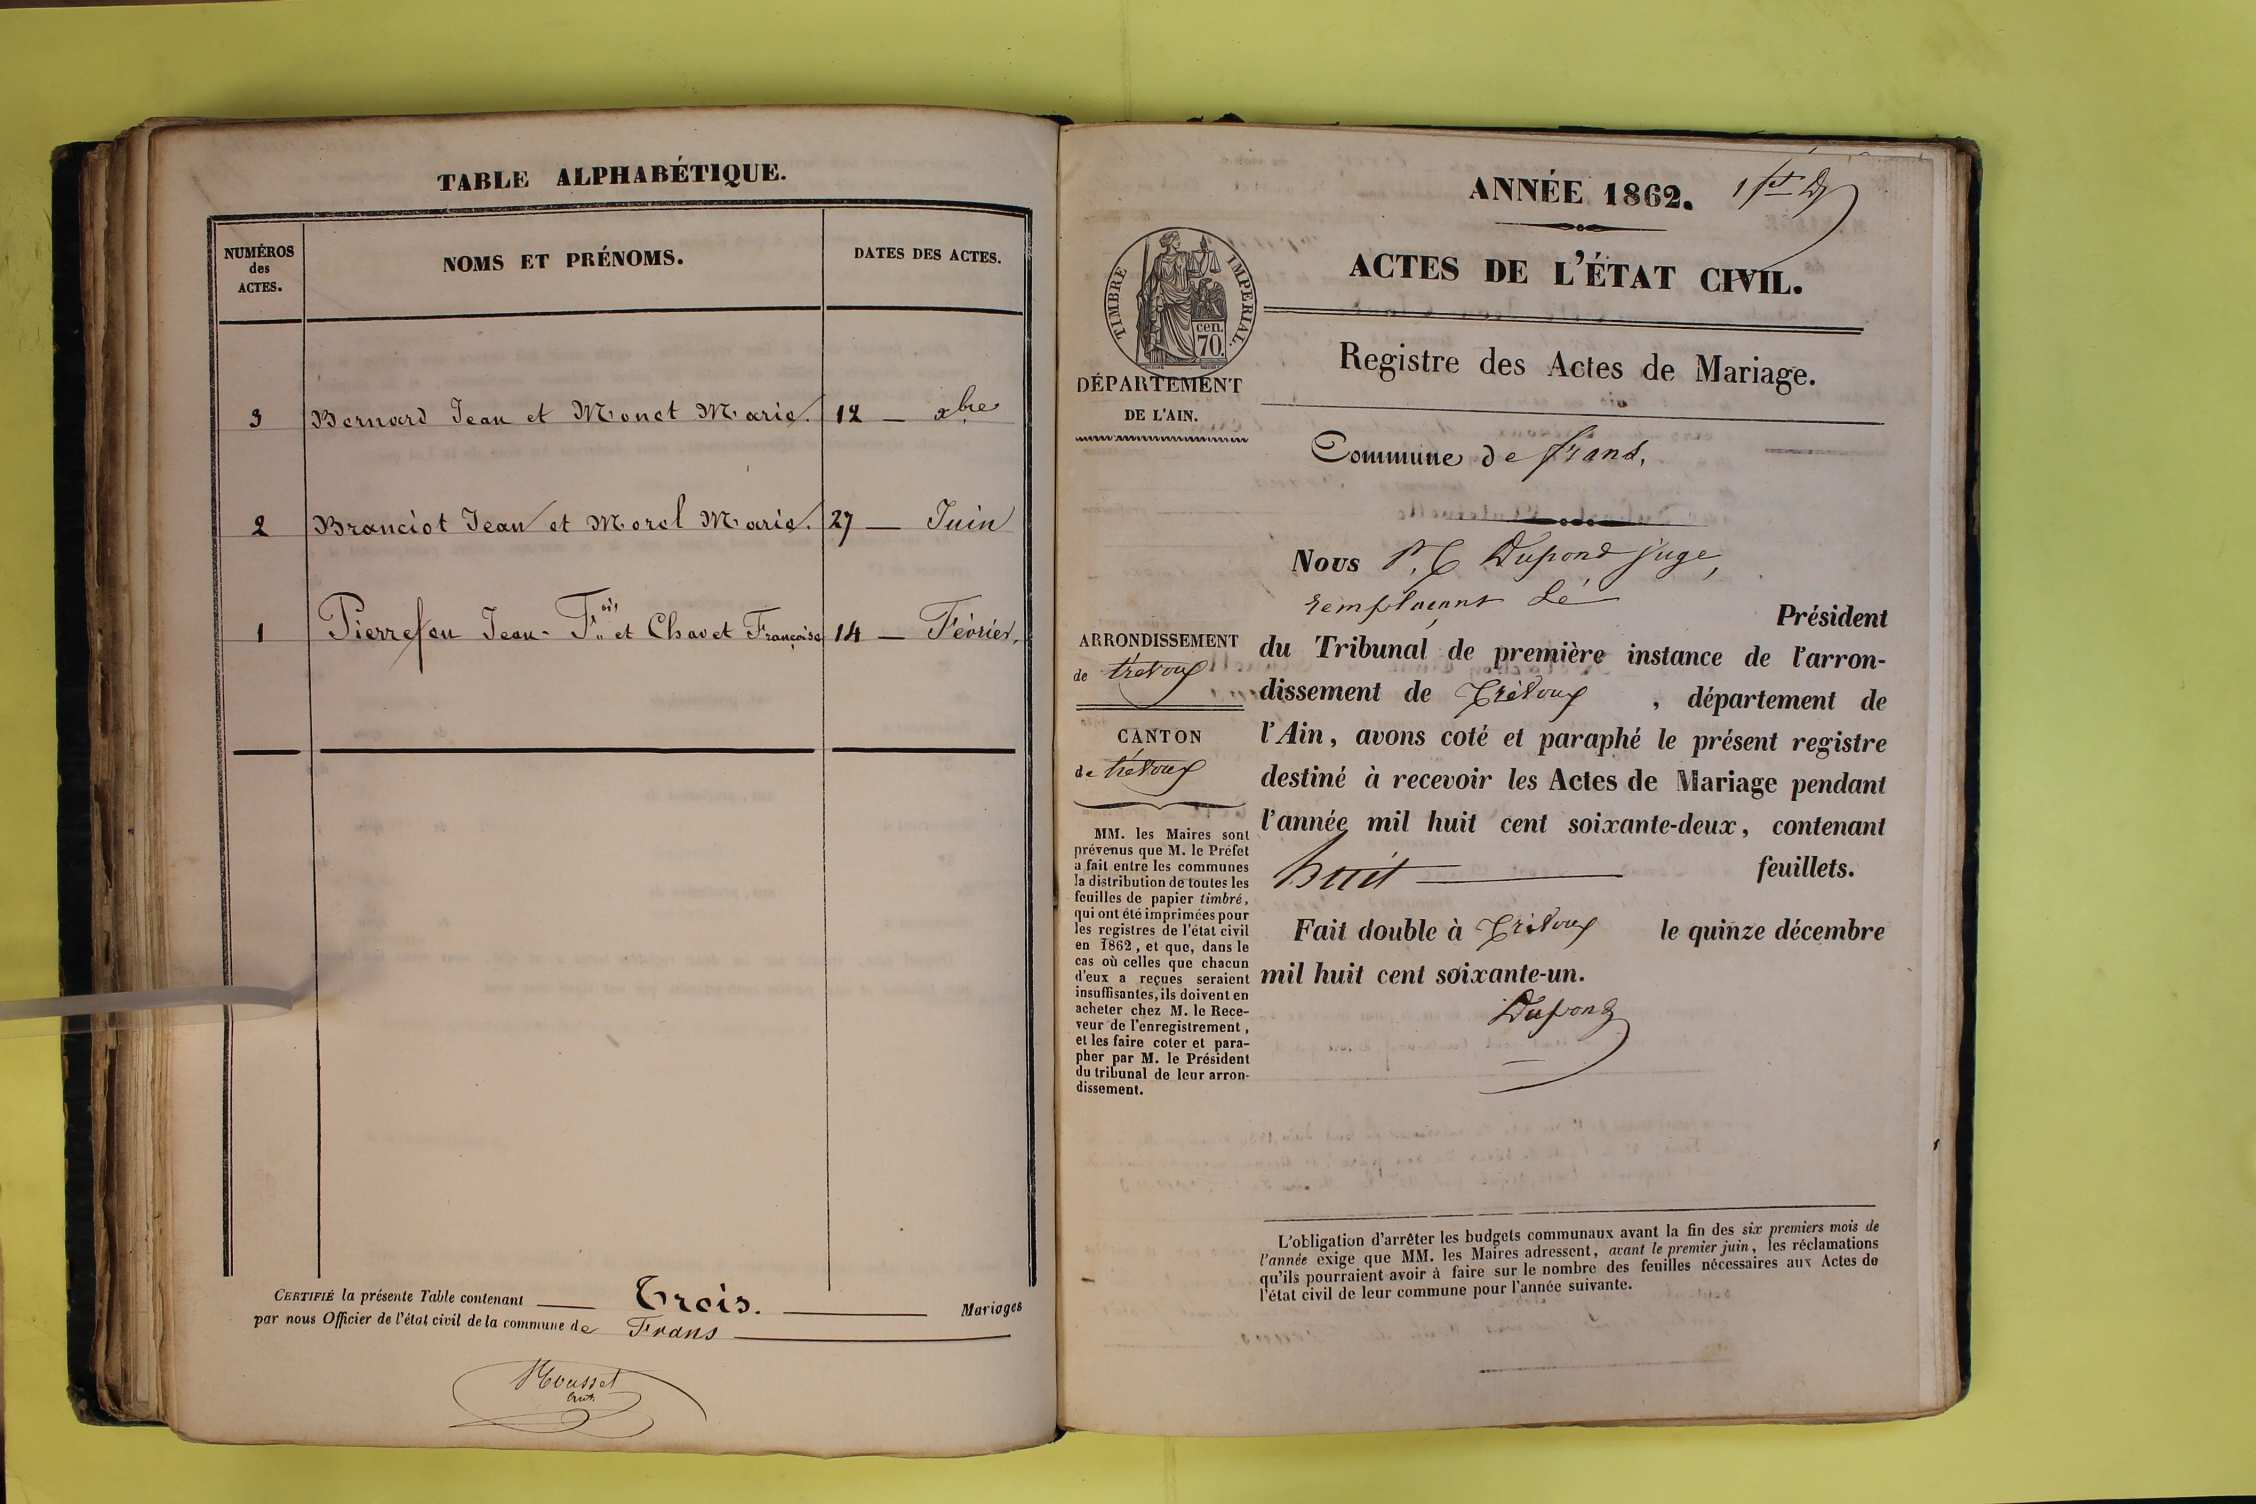 TABLE ALPHABÉTIQUE.
NUMÉROS
des
ACTES.
NOMS ET PRÉNOMS.
DATES DES ACTES.
3 Bernard Jean et Monet Marie. 12 — xbre
2 Branciot Jean et Morel Marie. 27 — Juin
1 Pierrefeu Jean-Fois et Chavet Françoise 14 — Février.
CERTIFIÉ la présente Table contenant Trois. Mariages
par nous Officier de l'état civil de la commune de Frans
Mousset
ANNÉE 1862.
ACTES DE L'ÉTAT CIVIL.
TIMBRE IMPÉRIAL.
cen.
70.
DÉPARTEMENT
DE L'AIN.
Registre des Actes de Mariage.
Commune de frans.
ARRONDISSEMENT
de trévoux
CANTON
de trévoux
MM. les Maires sont
prévenus que M. le Préfet
a fait entre les communes
la distribution de toutes les
feuilles de papier timbré,
qui ont été imprimées pour
les registres de l'état civil
en 1862, et que, dans le
cas où celles que chacun
d'eux a reçues seraient
insuffisantes, ils doivent en
acheter chez M. le Rece-
veur de l'enregistrement,
et les faire coter et para-
pher par M. le Président
du tribunal de leur arron-
dissement.
Nous Dupond juge,
remplaçant Président
du Tribunal de première instance de l'arron-
dissement de Trévoux , département de
l'Ain, avons coté et paraphé le présent registre
destiné à recevoir les Actes de Mariage pendant
l'année mil huit cent soixante-deux, contenant
huit feuillets.
Fait double à Trévoux le quinze décembre
mil huit cent soixante-un.
Dupond
L'obligation d'arrêter les budgets communaux avant la fin des six premiers mois de
l'année exige que MM. les Maires adressent, avant le premier juin, les réclamations
qu'ils pourraient avoir à faire sur le nombre des feuilles nécessaires aux Actes de
l'état civil de leur commune pour l'année suivante.